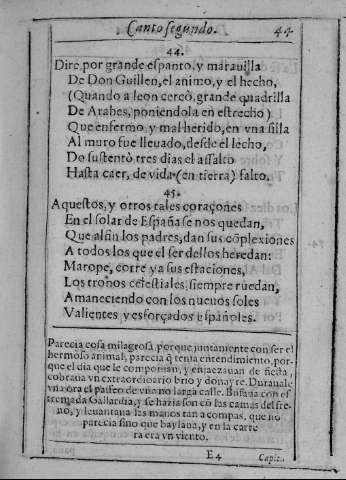 Canto segundo. 44
44.
Dire, por grande espanto, y marauilla
De Don Guillen, el animo, y el hecho,
(Quando a leon cercò, grande quadrilla
De Arabes, poniendola en estrecho)
Que enfermo, y mal herido, en vna silla
Al muro fue lleuado, desde el lecho,
Do sustentò tres dias el assalto
Hasta caer, de vida (en tierra) falto.
45.
Aquestos, y otros tales coraçones
En el solar de España se nos quedan,
Que alfin los padres, dan sus cõplexiones
A todos los que el ser dellos heredan:
Marope, corre ya sus estaciones,
Los tronos celestiales, siempre ruedan,
Amaneciendo con los nueuos soles
Valientes y esforçados Españoles.
Parecia cosa milagrosa, porque juntamente con ser el
hermoso animal, parecia q̃ tenia entendimiento, por-
que el dia que le componian, y enjaezauan de fiesta,
cobraua vn extraordinario brio y donayre. Durauale
vna ora el passeo de vna no larga calle. Bufaua con es
tremada Gallardia, y se hazia son cõ las camas del fre-
no, y leuantaua las manos tan a compas, que no
parecia sino que baylaua, y en la carre
ra era vn viento.
E 4 Capit.